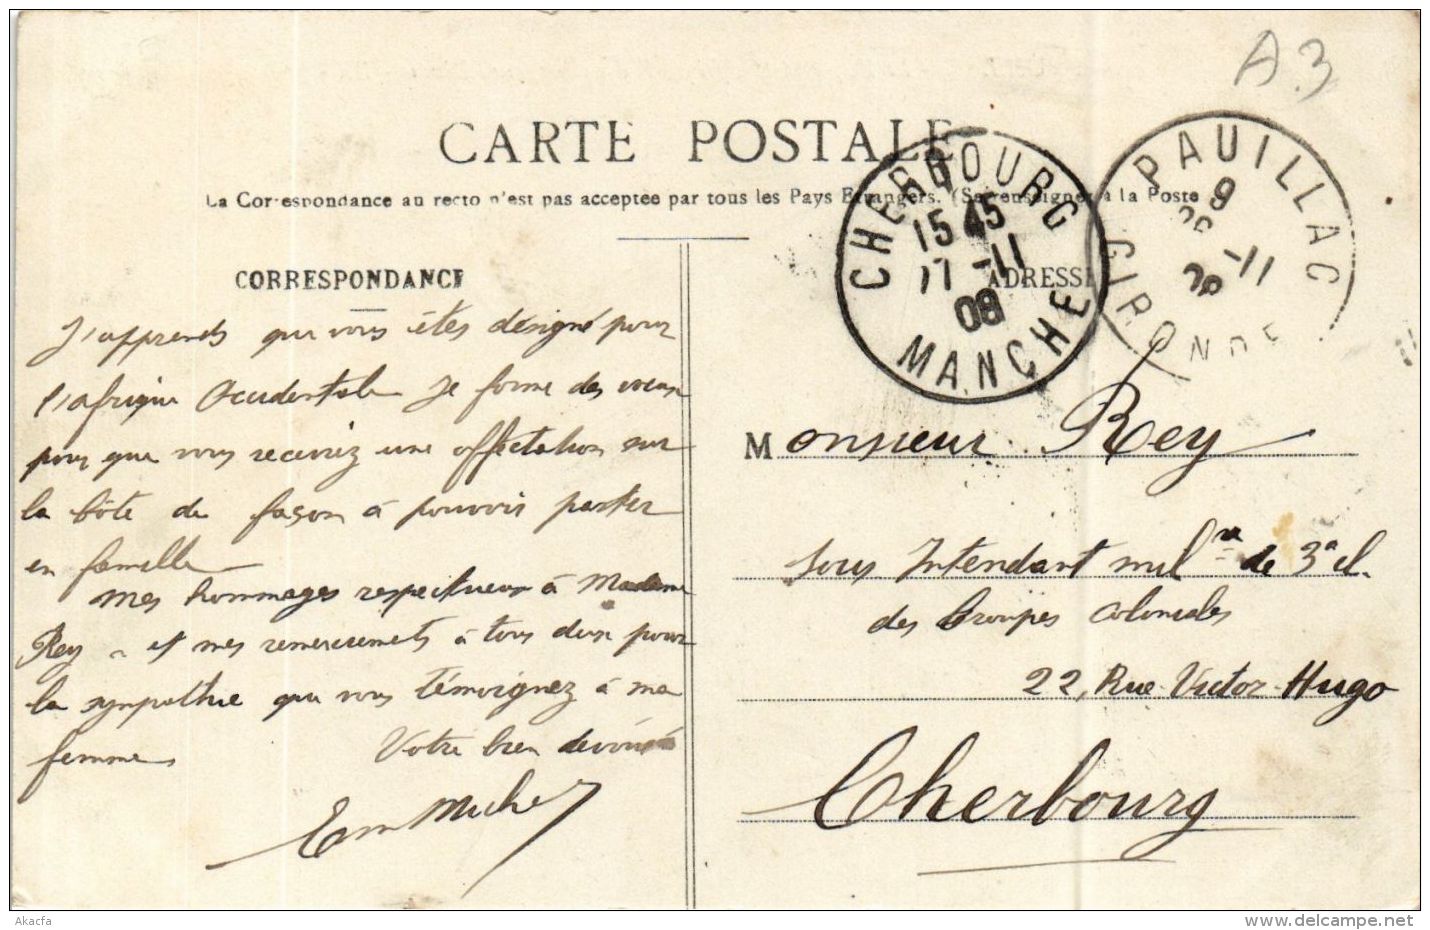 A.3
CARTE POSTALE
La Correspondance au recto n'est pas acceptée par tous les Pays Etrangers. (Se renseigner à la Poste
CHERBOURG
15 45
17 -11
08
MANCHE
PAUILLAC
9
-11
GIRONDE
CORRESPONDANCE
J'apprends que vous êtes désigné pour
l'afrique Occidentale Je forme des vœux
pour que vous receviez une affectation sur
la Côte de façon à pouvoir partir
en famille
Mes hommages respectueux à Madame
Rey et mes remerciements à tous deux pour
la sympathie que vous témoignez à ma
femme,
Votre bien dévoué
ADRESSE
Monsieur Rey
Sous Intendant milre de 3e cl.
des Troupes Coloniales
22, Rue Victor Hugo
Cherbourg
Akacfa
www.delcampe.net